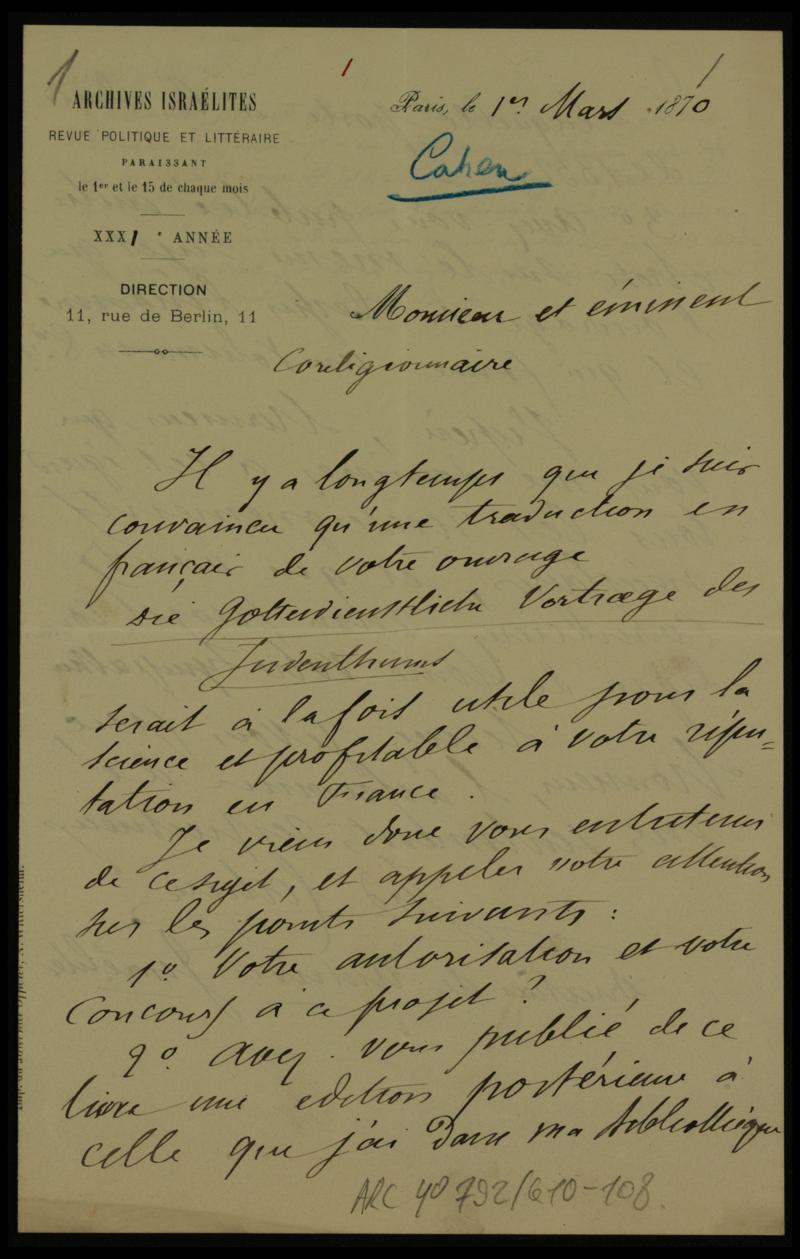 1
1
1
ARCHIVES ISRAÉLITES
REVUE POLITIQUE ET LITTÉRAIRE
PARAISSANT
le 1er et le 15 de chaque mois
XXX1e ANNÉE
DIRECTION
11, rue de Berlin, 11
Paris, le 1er Mars 1870
Cahen
Monsieur et éminent
Coreligionnaire
Il y a longtemps que je suis
convaincu qu'une traduction en
français de votre ouvrage
die Gottesdienstliche Vortræge des
Judenthums
serait à la fois utile pour la
science et profitable à votre répu=
tation en France.
Je viens donc vous entretenir
de ce sujet, et appeler votre attention
sur les points suivants :
1o Votre autorisation et votre
Concours à ce projet ?
2o Avez-vous publié de ce
livre une edition postérieure à
celle que j'ai dans ma bibliothèque
Imp. du Journal officiel, A. Wittersheim.
ARC 4o 792/G10-108.